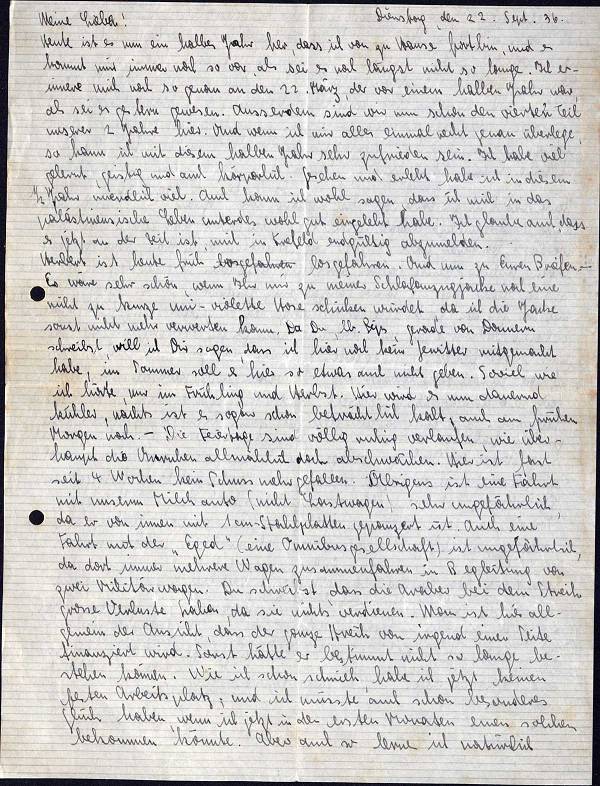 Meine Lieben! Dienstag, den 22. Sept. 36.
Heute ist es nun ein halbes Jahr her, dass ich von zu Hause fort bin, und es
kommt mir immer noch so vor, als sei es noch längst nicht so lange. Ich er-
innere mich noch so genau an den 22. März, der vor einem halben Jahr war
als sei es gestern gewesen. Ausserdem sind wir nun schon den vierten Teil
unserer 2 Jahre hier. Und wenn ich mir alles einmal recht genau überlege,
so kann ich mit diesem halben Jahr sehr zufrieden sein. Ich habe viel
gelernt, geistig und auch körperlich. Gesehen und erlebt habe ich in diesem
1/2 Jahr unendlich viel. Auch kann ich wohl sagen dass ich mich in das
palästinensische Leben unterdes wohl gut eingelebt habe. Ich glaube auch dass
es jetzt an der Zeit ist, mich in Krefeld endgültig abzumelden.
Herbert ist heute früh losgefahren. Und nun zu Euren Briefen.–
Es wäre sehr schön, wenn Ihr mir zu meiner Schlafanzugjacke noch eine
nicht zu kurze uni-violette Hose schicken würdet, da ich die Jacke
sonst nicht mehr verwerten kann. Da Du, lb. gerade von Donnern
schreibst will ich Dir sagen dass ich hier noch kein Gewitter mitgemacht
habe, im Sommer soll es hier so etwas auch nicht geben. Soviel wie
ich hörte, nur im Frühling und Herbst. Hier wird es nun dauernd
kühler, nachts ist es sogar schon beträchtlich kalt, auch am frühen
Morgen noch. – Die Feiertage sind völlig ruhig verlaufen, wie über-
haupt die Unruhen allmählich doch abschwächen. Hier ist fast
seit 4 Wochen kein Schuss mehr gefallen. Übrigens ist eine Fahrt
mit unserem Milchauto (nicht Lastwagen) sehr ungefährlich,
da er von innen mit 1 cm-Stahlplatten gepanzert ist. Auch eine
Fahrt mit der „Eged" (eine Omnibusgesellschaft) ist ungefährlich,
da dort immer mehrere Wagen zusammenfahren in Begleitung von
zwei Militärwagen. Du schreibst dass die Araber bei dem Streik
grosse Verluste haben, da sie nichts verdienen. Man ist hier all-
gemein der Ansicht, dass der ganze Streik von irgend einer Seite
finanziert wird. Sonst hätte er bestimmt nicht so lange be-
stehen können. Wie ich schon schrieb habe ich jetzt keinen
festen Arbeitsplatz, und ich müsste auch schon besonderes
Glück haben wenn ich jetzt in den ersten Monaten einen solchen
bekommen könnte. Aber auch so lerne ich natürlich